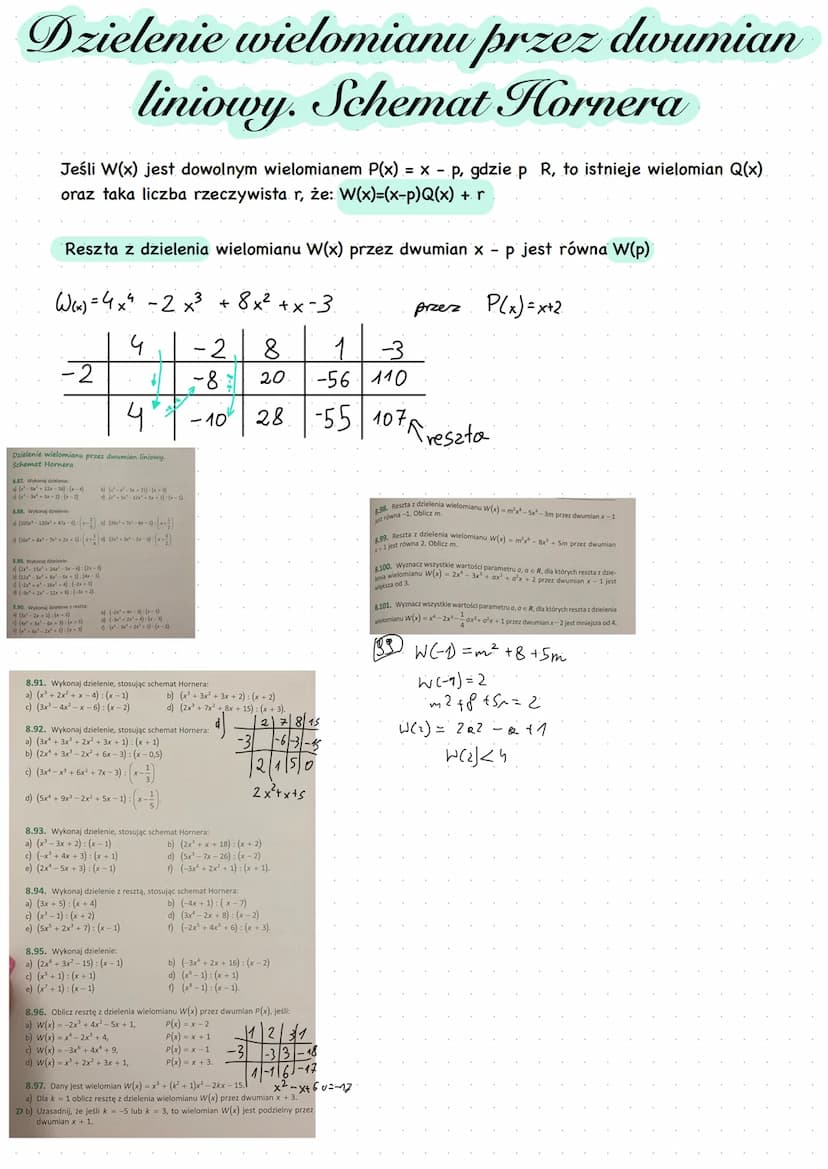 Dzielenie wielomianu przez dwumian
liniowy. Schemat Hornera
Jeśli W(x) jest dowolnym wielomianem P(x) = x - p, gdzie p R, to istnieje wielomian Q(x)
oraz taka liczba rzeczywista r, że: W(x)=(x-p)Q(x) + r
Reszta z dzielenia wielomianu W(x) przez dwumian x - p jest równa W(p)
W(x)=4x⁴ -2x³ + 8x² +x-3 przez P(x)=x+2
4 -2 8 1 -3
-2 -8 20 -56 110
4 -10 28 -55 107
reszta
Dzielenie wielomianu przez dwumian liniowy.
Schemat Hornera
8.87. Wykonaj dzielenie:
8.88. Wykonaj dzielenie:
8.89. Wykonaj dzielenie:
8.90. Wykonaj dzielenie z resztą:
8.98. Reszta z dzielenia wielomianu W(x) = m²x⁴ – 5x³ – 3m przez dwumian x – 1
jest równa –1. Oblicz m.
8.99. Reszta z dzielenia wielomianu W(x) = m²x⁴ – 8x³ + 5m przez dwumian
x + 1 jest równa 2. Oblicz m.
8.100. Wyznacz wszystkie wartości parametru a, a ∈ R, dla których reszta z dzie-
lenia wielomianu W(x) = 2x⁴ – 3x³ + ax² + a²x + 2 przez dwumian x – 1 jest
większa od 3.
8.101. Wyznacz wszystkie wartości parametru a, a ∈ R, dla których reszta z dzielenia
wielomianu W(x) = x⁴ – 2x³ – 1/4 ax² + a²x + 1 przez dwumian x – 2 jest mniejsza od 4.
99 W(-1) =m² +8 +5m
W(-1)=2
m2+8 +5m = 2
W(2) = 2a2 - a +1
W(2)<4
8.91. Wykonaj dzielenie, stosując schemat Hornera:
a) (x³ + 2x² + x – 4) : (x – 1) b) (x³ + 3x² + 3x + 2) : (x + 2)
c) (3x³ – 4x² – x – 6) : (x – 2) d) (2x³ + 7x² + 8x + 15) : (x + 3).
d) 2 7 8 15
-3 -6 -3 -15
2 1 5 0
2x²+x+5
8.92. Wykonaj dzielenie, stosując schemat Hornera:
a) (3x⁴ + 3x³ + 2x² + 3x + 1) : (x + 1)
b) (2x⁴ + 3x³ – 2x² + 6x – 3) : (x – 0,5)
c) (3x⁴ – x³ + 6x² + 7x – 3) : (x – 1/3)
d) (5x⁴ + 9x³ – 2x² + 5x – 1) : (x – 1/5).
8.93. Wykonaj dzielenie, stosując schemat Hornera:
a) (x³ – 3x + 2) : (x – 1) b) (2x³ + x + 18) : (x + 2)
c) (–x³ + 4x + 3) : (x + 1) d) (5x³ – 7x – 26) : (x – 2)
e) (2x⁴ – 5x + 3) : (x – 1) f) (–3x⁴ + 2x² + 1) : (x + 1).
8.94. Wykonaj dzielenie z resztą, stosując schemat Hornera:
a) (3x + 5) : (x + 4) b) (–4x + 1) : ( x – 7)
c) (x² – 1) : (x + 2) d) (3x⁴ – 2x + 8) : (x – 2)
e) (5x⁵ + 2x³ + 7) : (x – 1) f) (–2x⁵ + 4x³ + 6) : (x + 3).
8.95. Wykonaj dzielenie:
a) (2x⁴ + 3x² – 15) : (x – 1) b) (–3x⁴ + 2x + 16) : (x – 2)
c) (x⁵ + 1) : (x + 1) d) (x⁶ – 1) : (x + 1)
e) (x⁷ + 1) : (x – 1) f) (x⁸ – 1) : (x – 1).
8.96. Oblicz resztę z dzielenia wielomianu W(x) przez dwumian P(x), jeśli:
a) W(x) = –2x³ + 4x² – 5x + 1, P(x) = x – 2
b) W(x) = x⁴ – 2x³ + 4, P(x) = x + 1
c) W(x) = –3x⁶ + 4x⁴ + 9, P(x) = x – 1
d) W(x) = x³ + 2x² + 3x + 1, P(x) = x + 3.
1 2 3 1
-3 -3 3 -18
1 -1 6 -17
x²-x+6 r=-17
8.97. Dany jest wielomian W(x) = x³ + (k² + 1)x² – 2kx – 15.
a) Dla k = 1 oblicz resztę z dzielenia wielomianu W(x) przez dwumian x + 3.
D b) Uzasadnij, że jeśli k = –5 lub k = 3, to wielomian W(x) jest podzielny przez
dwumian x + 1.